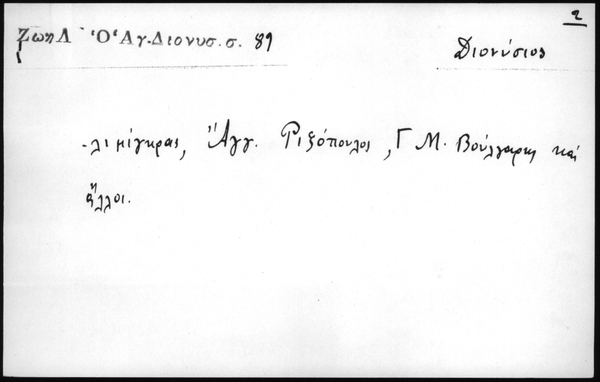 2
Ζωη Λ Ὁ Ἁγ. Διονυσ. σ. 89
Διονύσιος
-λιμίγκρας, Ἄγγ. Ριξόπουλος, Γ Μ. Βούλγαρης καὶ
ἄλλοι.